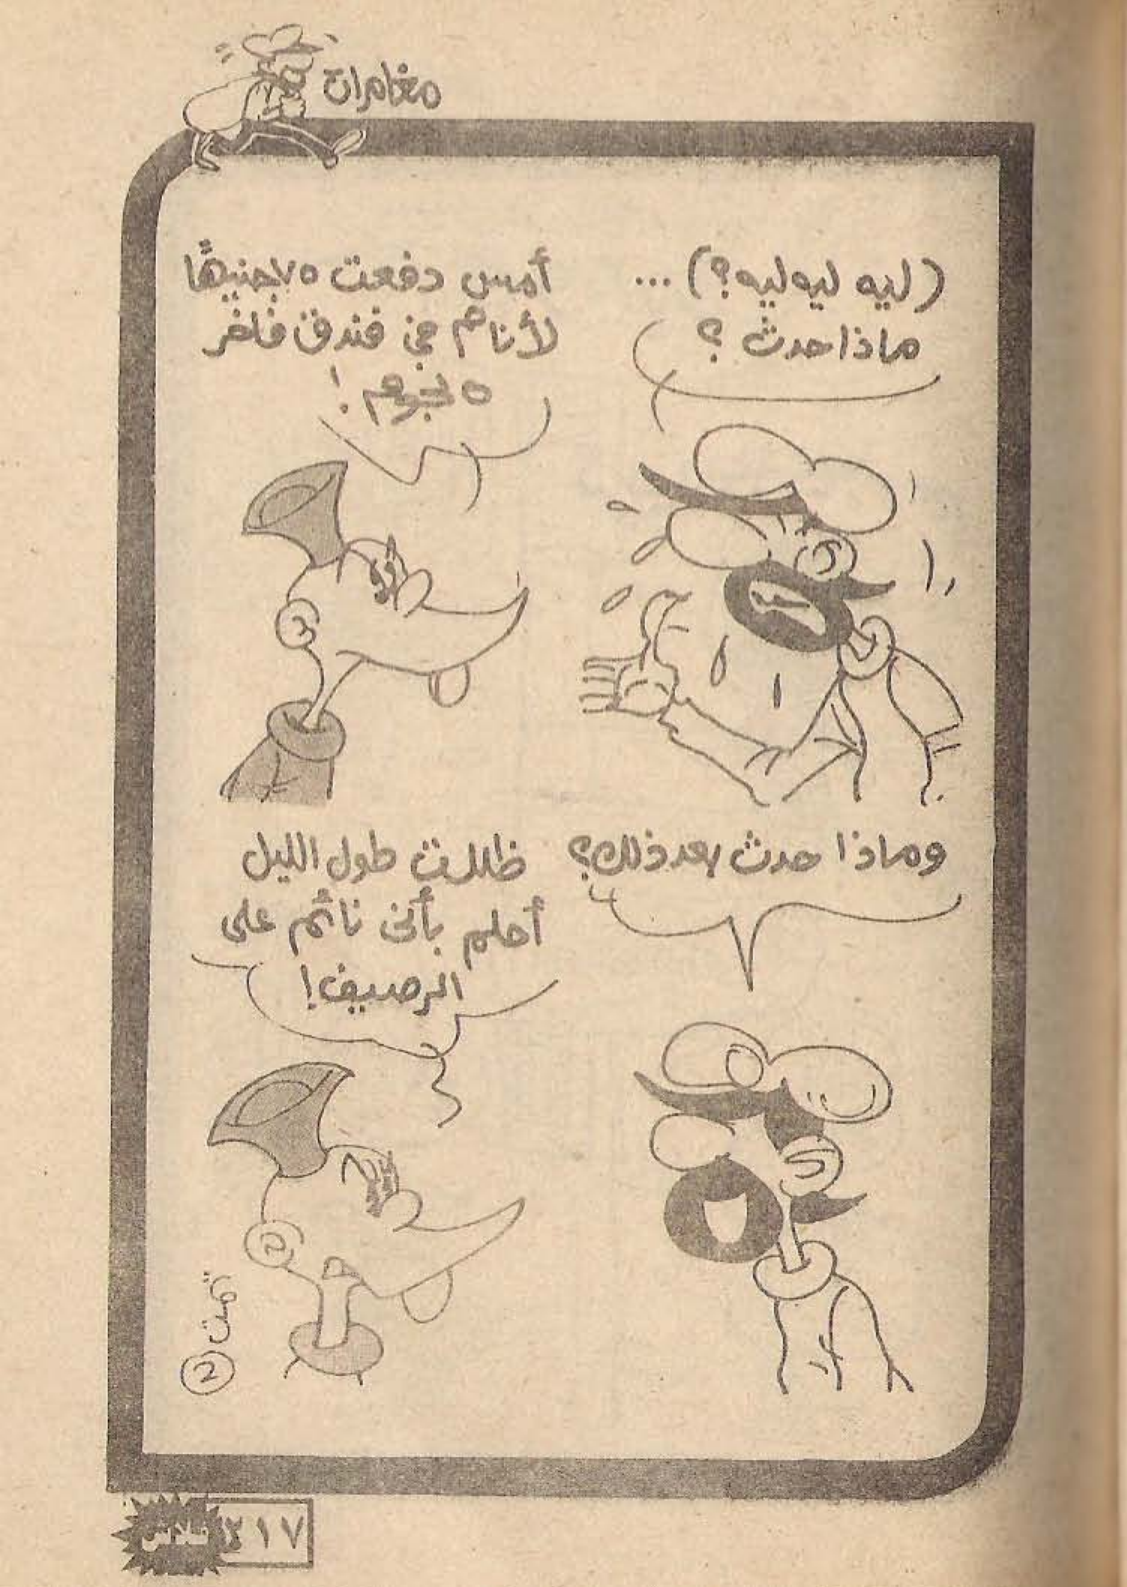 مغامرات
(ليه ليه ليه؟) ...
ماذا حدث؟
أمس دفعت ٧٥ جنيهًا
لأنام في فندق فاخر
٥ نجوم!
وماذا حدث بعد ذلك؟
ظللت طول الليل
أحلم بأنى نائم على
الرصيف!
تمت
فلاش